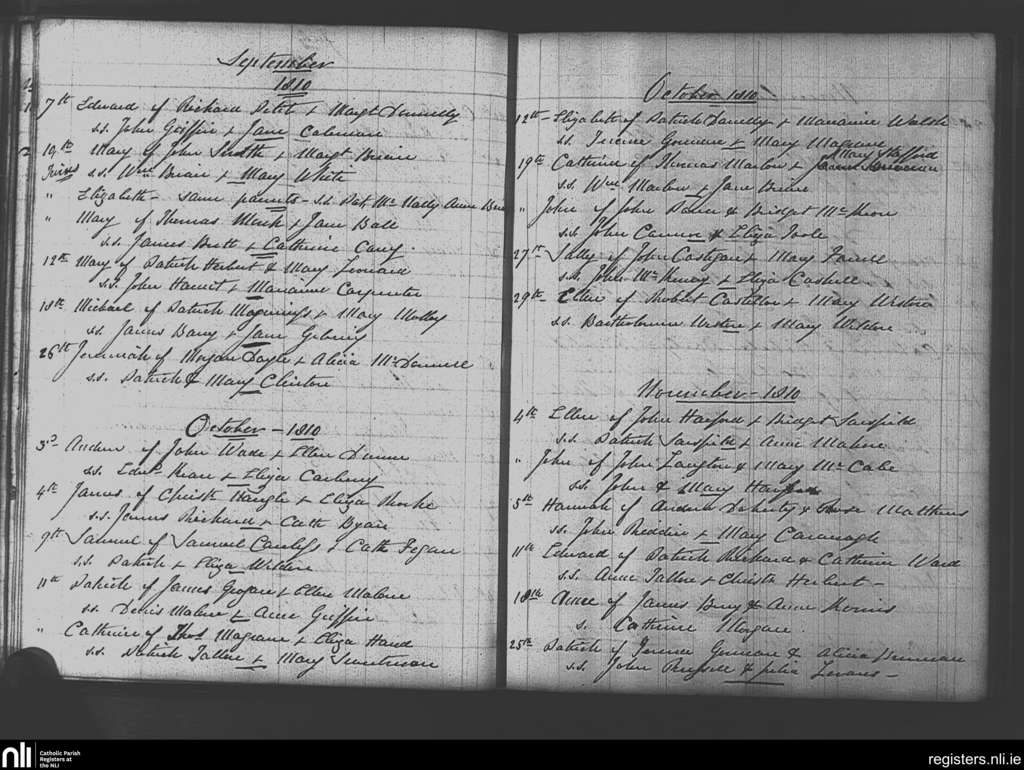 September
1810
7th Edward of Richard Petit & Margt Dunnelly
s.s. John Griffin & Jane Colman
10th Mary of John Smith & Margt Brien
Twins s.s. Wm Brian & Mary White
" Elizabeth - same parents - s.s. Pat. McNally Anne
" Mary of Thomas & Jane Ball
s.s. James Butt & Catherine Carey.
12th Mary of Patrick Herbert & Mary Leonard
s.s. John & Marianne Carpenter
18th Michael of Patrick & Mary Molloy
s.s. James Barry & Jane
26th Jeremiah of Morgan Doyle & Alicia McDonnell
s.s. Patrick & Mary Clinton
October - 1810
3d Andrew of John Wade & Ellen Dunne
s.s. Edwd Kean & Eliza Carberry
4th James of Christr Nangle & Eliza Rorke
s.s. James Richard & Cath Byrn
9th Samuel of Samuel & Cath Fegan
s.s. Patrick & Eliza Wilden
11th Patrick of James Grogan & Ellen Malone
s.s. Denis Malone & Anne Griffin
" Catherine of Thos Magrane & Eliza Hand
s.s. Patrick Tallon & Mary
October 1810
12th Elizabeth of Patrick Donnelly & Marianne Walsh
s.s. Terence & Mary Magrane
Mary Stafford
19th Catherine of Thomas Marlow &
s.s. Wm Marlow & Jane
" John of John & Bridget McKeon
s.s. John & Eliza Toole
27th Sally of John Costigan & Mary Farrell
s.s. John & Eliza Cashell
29th Ellen of Robert Costelloe & Mary Weston
s.s. Bartholomew Weston & Mary Wilden
November - 1810
4th Ellen of John Harford & Bridget Sarsfield
s.s. Patrick Sarsfield & Anne Malone
" John of John Langton & Mary McCabe
s.s. John & Mary Harford
5th Hannah of Andrew Doherty & Rose Matthews
s.s. John Reddin & Mary Cavanagh
11th Edward of Patrick Richard & Catherine Ward
s.s. Anne Tallon & Christr Herbert -
18th Anne of James Berry & Anne Morris
s. Catherine Morgan.
25th Patrick of Terence & Alicia
s.s. John Russell & Julia Levans -
nli
Catholic Parish
Registers at
the NLI
registers.nli.ie